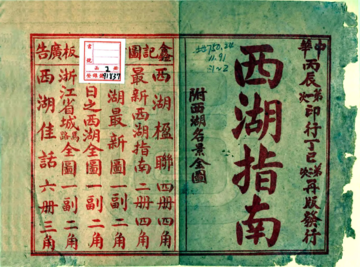 中華丙辰第一次印行丁巳第二次再版發行
西湖指南
附西湖名景全圖
鑫記圖板廣告
西湖楹聯 四册四角
最新西湖指南 二册四角
西湖最新圖 一 二角
日之西湖全圖 一副二角
浙江省城馬路全圖 一副二角
西湖佳話 六册三角